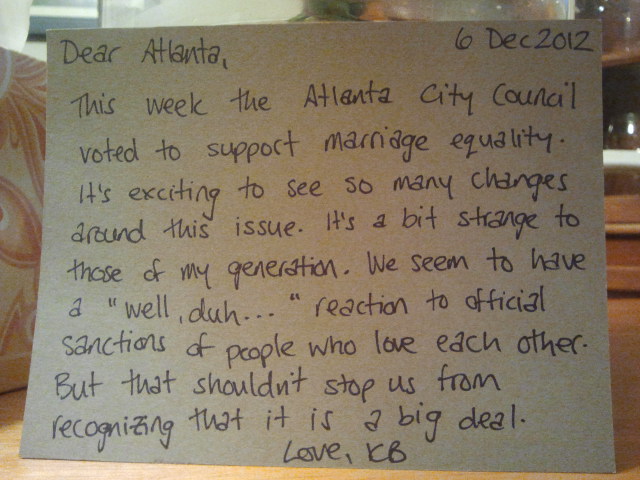 6 Dec 2012
Dear Atlanta,
This week the Atlanta City Council
voted to support marriage equality.
It's exciting to see so many changes
around this issue. It's a bit strange to
those of my generation. We seem to have
a "well, duh..." reaction to official
sanctions of people who love each other.
But that shouldn't stop us from
recognizing that it is a big deal.
Love, KB